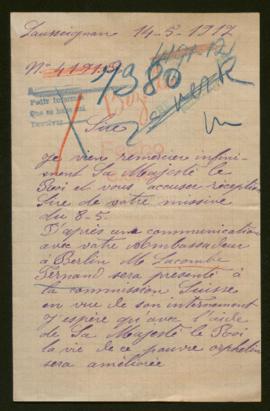 Lausseignan 14-5-1917
7380
Sire
Je viens remercier infini-
ment Sa Majesté le
Roi et vous accuser réception
Sire de votre missive
du 8-5.
D'après une communication
avec votre Ambassadeur
à Berlin M Lacombe
Fernand sera présenté à
la commission Suisse
en vue de son internement
J'espère qu'avec l'aide
de Sa Majesté le Roi
la vie de ce pauvre orphelin
sera améliorée